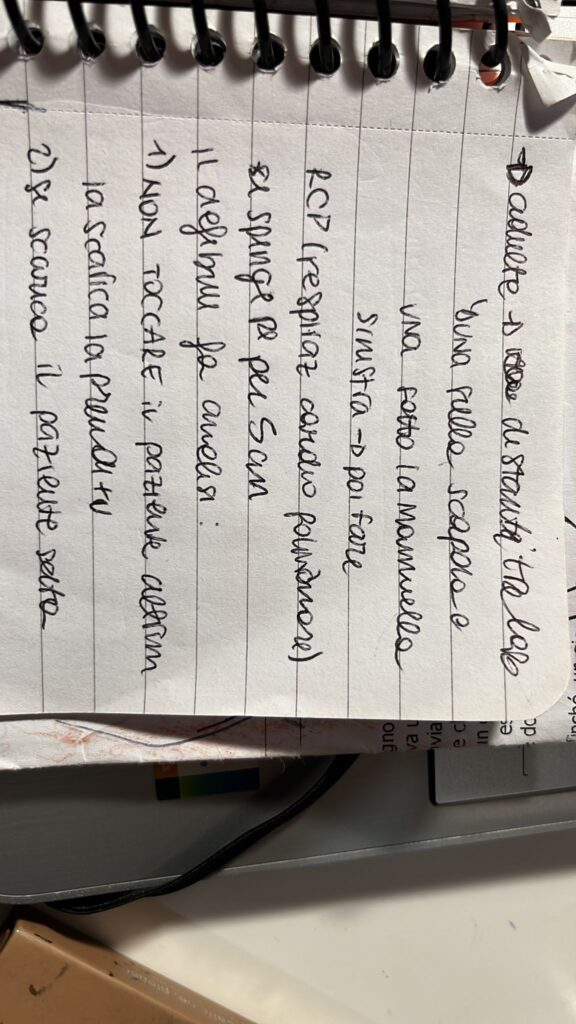 → adulte → distanti tra loro
una sulla scapola e
una sotto la mammella
sinistra → poi fare
RCP (respiraz cardio polmonare)
si spinge per 5cm
il defibrill fa analisi:
1) NON TOCCARE il paziente altrim
la scarica la prendi tu
2) se scarica il paziente salta